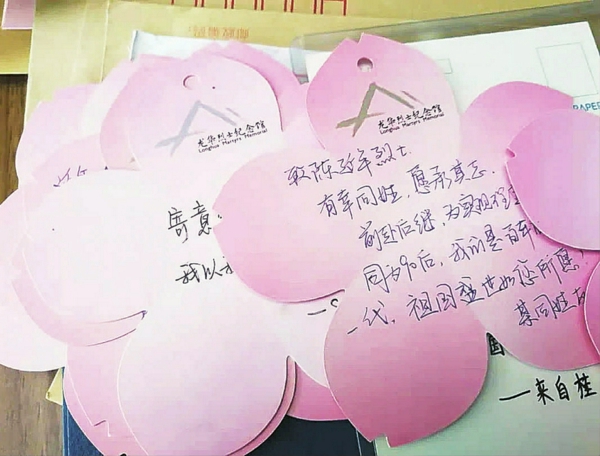 龙华烈士纪念馆
Longhua Martyrs Memorial
寄意
我以
龙华烈士纪念馆
Longhua Martyrs Memorial
致陈延年烈士
有幸同姓，愿承其志，
前赴后继，为实现
同为90后，我们是百年
一代，祖国盛世如您所愿
某同姓
国
—来自桂
PAPER